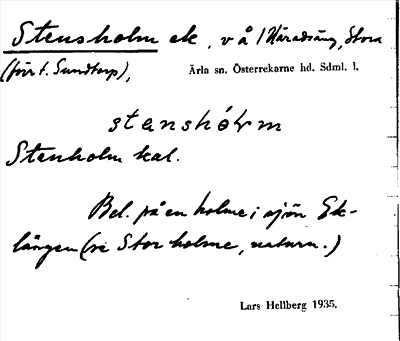 Stensholm ek, vå / Häradsäng, Stora
(förr t. Sundtorp),
Ärla sn. Österrekarne hd. Sdml. l.
stenshólm
Stenholm kal.
Bel. på en holme i sjön Ek-
lången (se Stor holme, naturn.)
Lars Hellberg 1935.